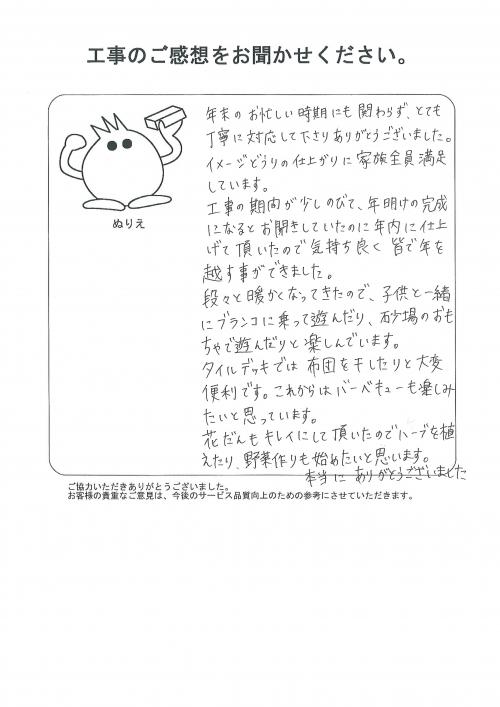 工事のご感想をお聞かせください。
年末の お忙しい時期にも 関わらず、とても
丁寧に対応して下さりありがとうございました。
イメージどうりの仕上がりに家族全員満足
しています。
工事の期間が少しのびて、年明けの完成
になると お聞きしていたのに年内に仕上
げて頂いたので気持ち良く 皆で年を
越す事ができました。
段々と暖かくなってきたので、子供と一緒
にブランコに乗って遊んだり、砂場のおも
ちゃで遊んだりと楽しんでいます。
タイルデッキでは 布団を干したりと大変
便利です。これからはバーベキューも楽しみ
たいと思っています。
花だんもキレイにして頂いたのでハーブを植
えたり、野菜作りも始めたいと思います。
本当に ありがとうございました
ぬりえ
ご協力いただきありがとうございました。
お客様の貴重なご意見は、今後のサービス品質向上のための参考にさせていただきます。